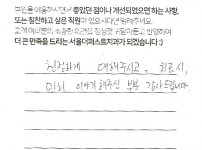 본원을 이용하시면서 좋았던 점이나 개선되었으면 하는 사항,
또는 칭찬하고 싶은 직원이 있으시다면 알려주세요.
고객 여러분의 소중한 의견을 정성껏 귀담아듣고 반영하여
더 큰 만족을 드리는 서울더페스트치과가 되겠습니다 :)
친절하게 대해주시고, 치료시,
미리 이야기해주신 부분 감사드립니다